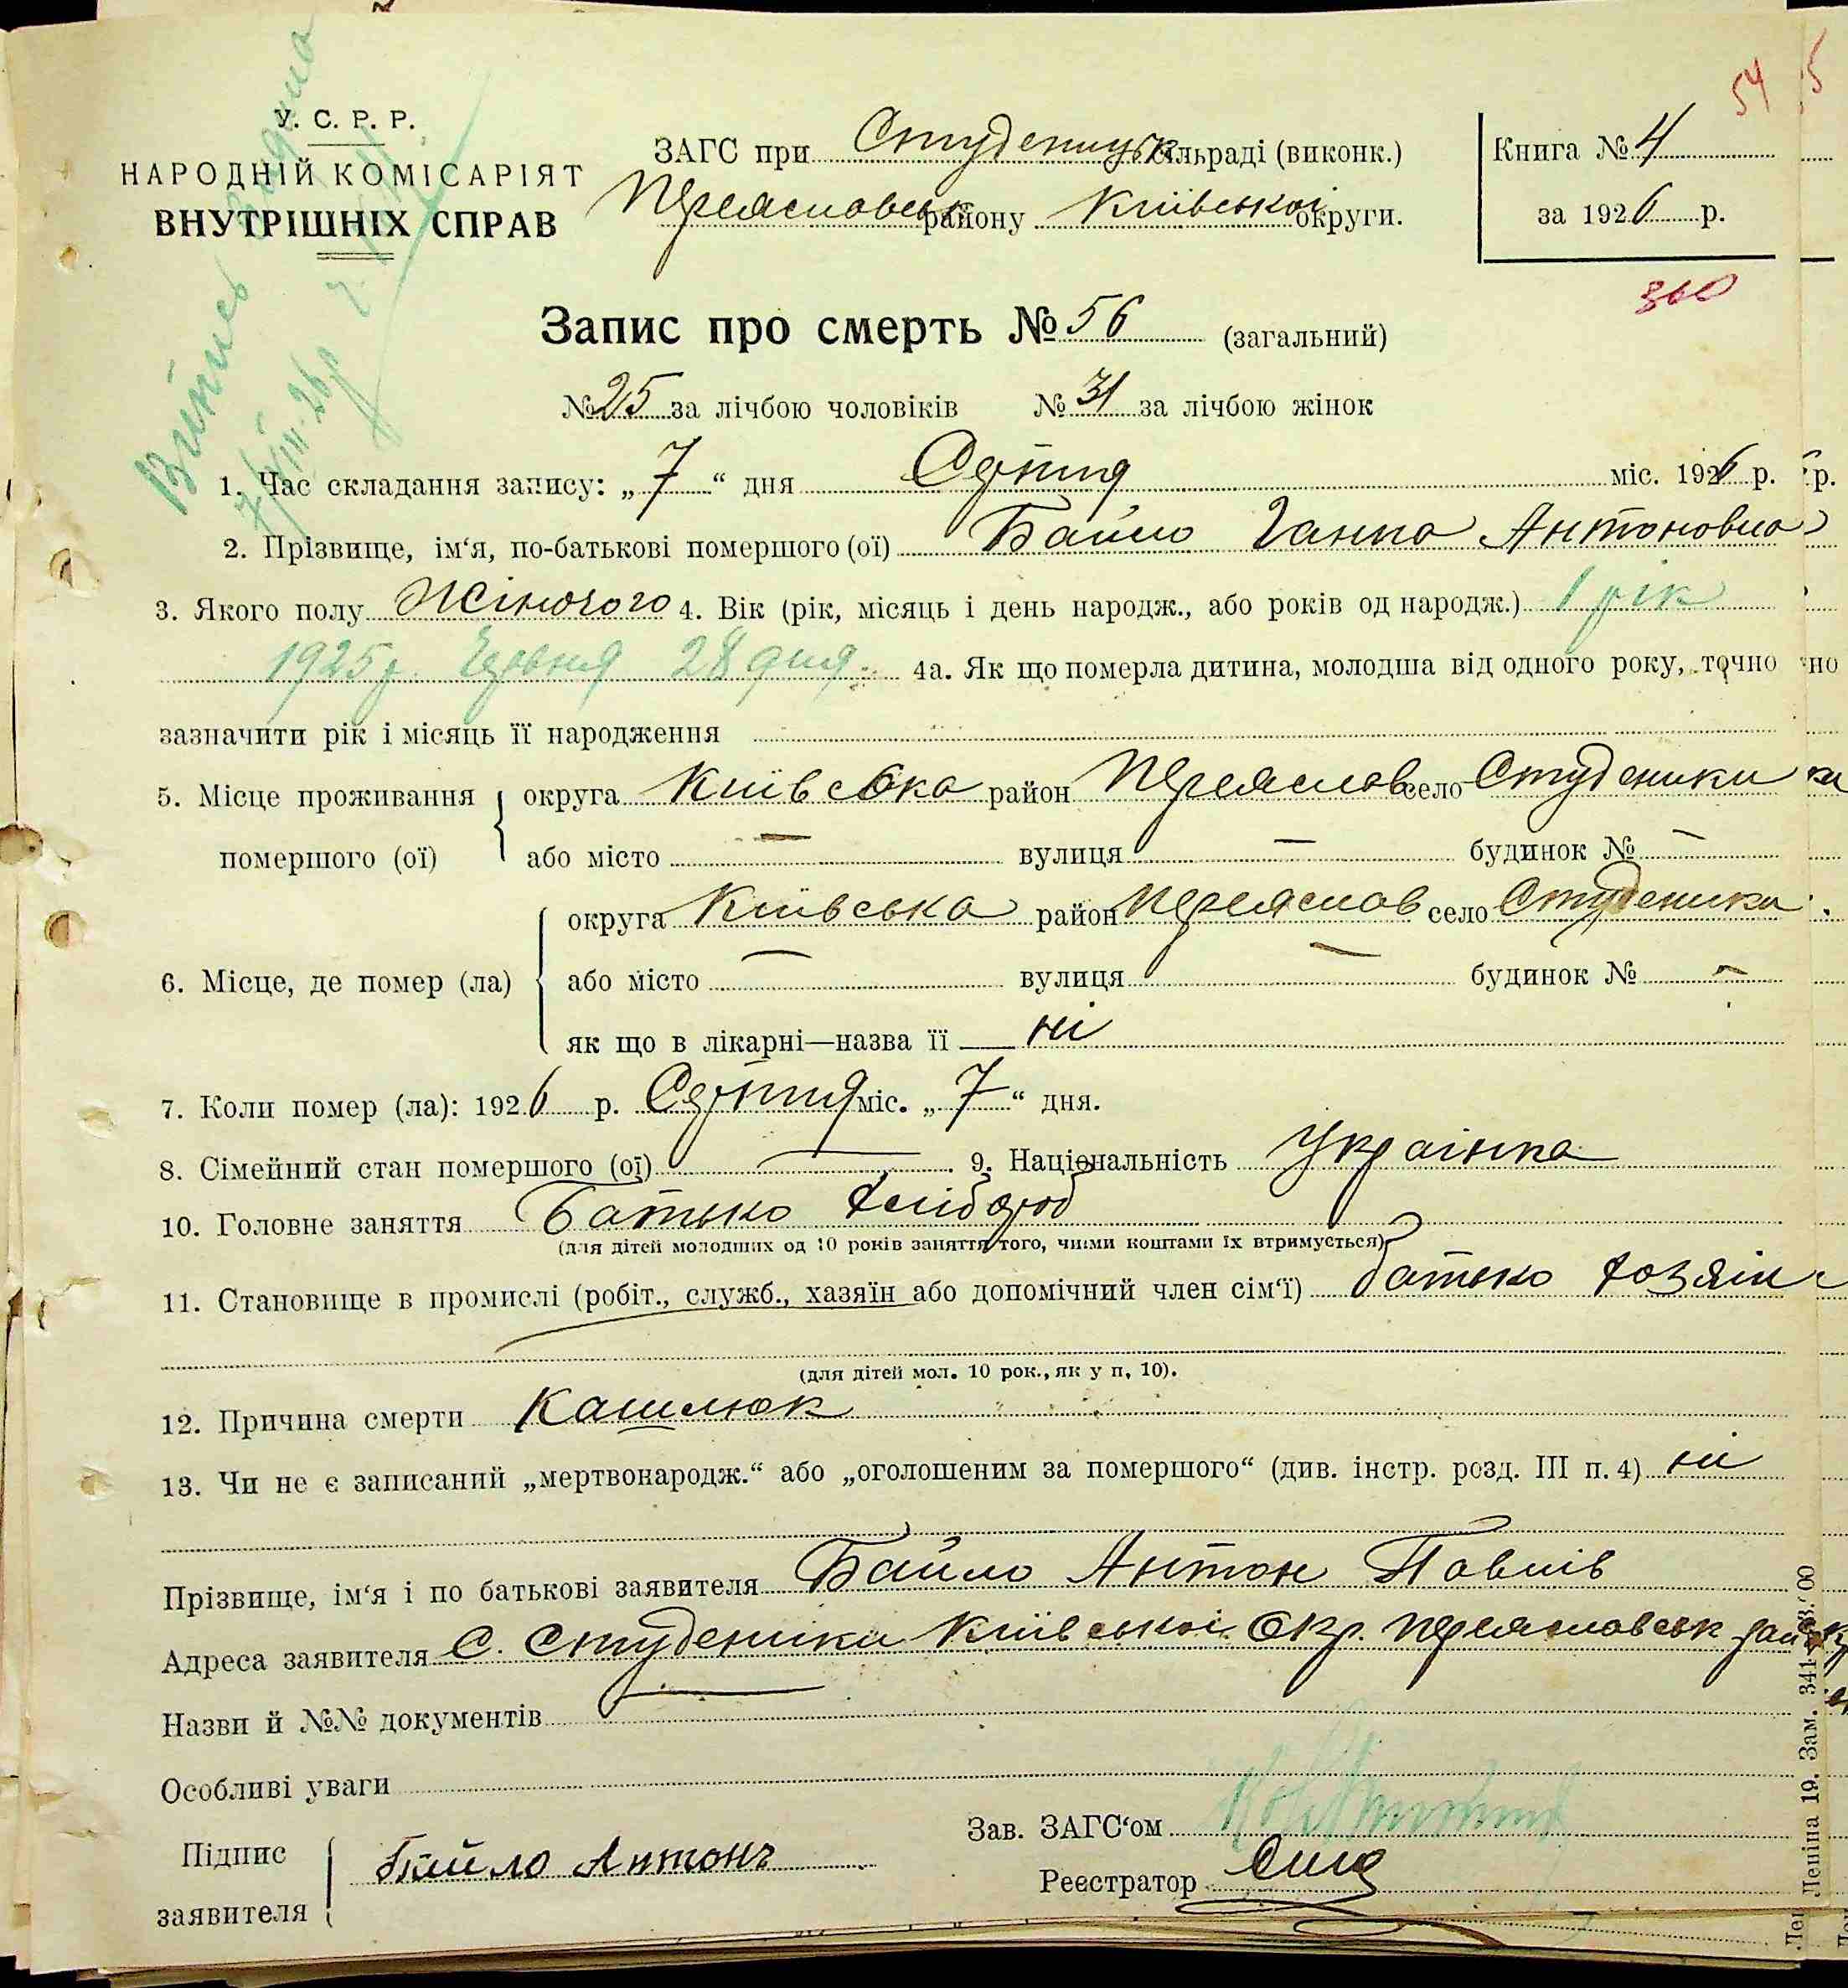 54
У. С. Р. Р.
НАРОДНІЙ КОМІСАРІЯТ
ВНУТРІШНІХ СПРАВ
ЗАГС при Студеницьк сільраді (виконк.)
Переяславськ району Київської округи.
Книга № 4
за 1926 р.
360
Випись видана
7/VIII-26р
Запис про смерть № 56 (загальний)
№ 25 за лічбою чоловіків № 31 за лічбою жінок
1. Час складання запису: „7“ дня Серпня міс. 1926 р.
2. Прізвище, ім‘я, по-батькові помершого (ої) Байло Ганна Антоновна
3. Якого полу Жіночого 4. Вік (рік, місяць і день народж., або років од народж.) 1 рік
1925р. Червня 28 дня. 4а. Як що померла дитина, молодша від одного року, точно
зазначити рік і місяць її народження
5. Місце проживання помершого (ої) округа Київська район Переяслав село Студеники
або місто — вулиця — будинок № —
6. Місце, де помер (ла) округа Київська район Переяслав село Студеники
або місто — вулиця — будинок № —
як що в лікарні—назва її ні
7. Коли помер (ла): 1926 р. Серпня міс. „7“ дня.
8. Сімейний стан помершого (ої) — 9. Національність Українка
10. Головне заняття Батько хлібороб
(для дітей молодших од 10 років заняття того, чиїми коштами їх втримується)
11. Становище в промислі (робіт., служб., хазяїн або допомічний член сім‘ї) батько хозяін
(для дітей мол. 10 рок., як у п. 10).
12. Причина смерти Кашлюк
13. Чи не є записаний „мертвонародж.“ або „оголошеним за помершого“ (див. інстр. розд. III п. 4) ні
Прізвище, ім‘я і по батькові заявителя Байло Антон Павлів
Адреса заявителя С. Студеники Київської Окр. Переяславськ рай
Назви й №№ документів —
Особливі уваги
Зав. ЗАГС‘ом
Підпис заявителя Байло Антонъ
Реєстратор
Леніна 19. Зам. 341